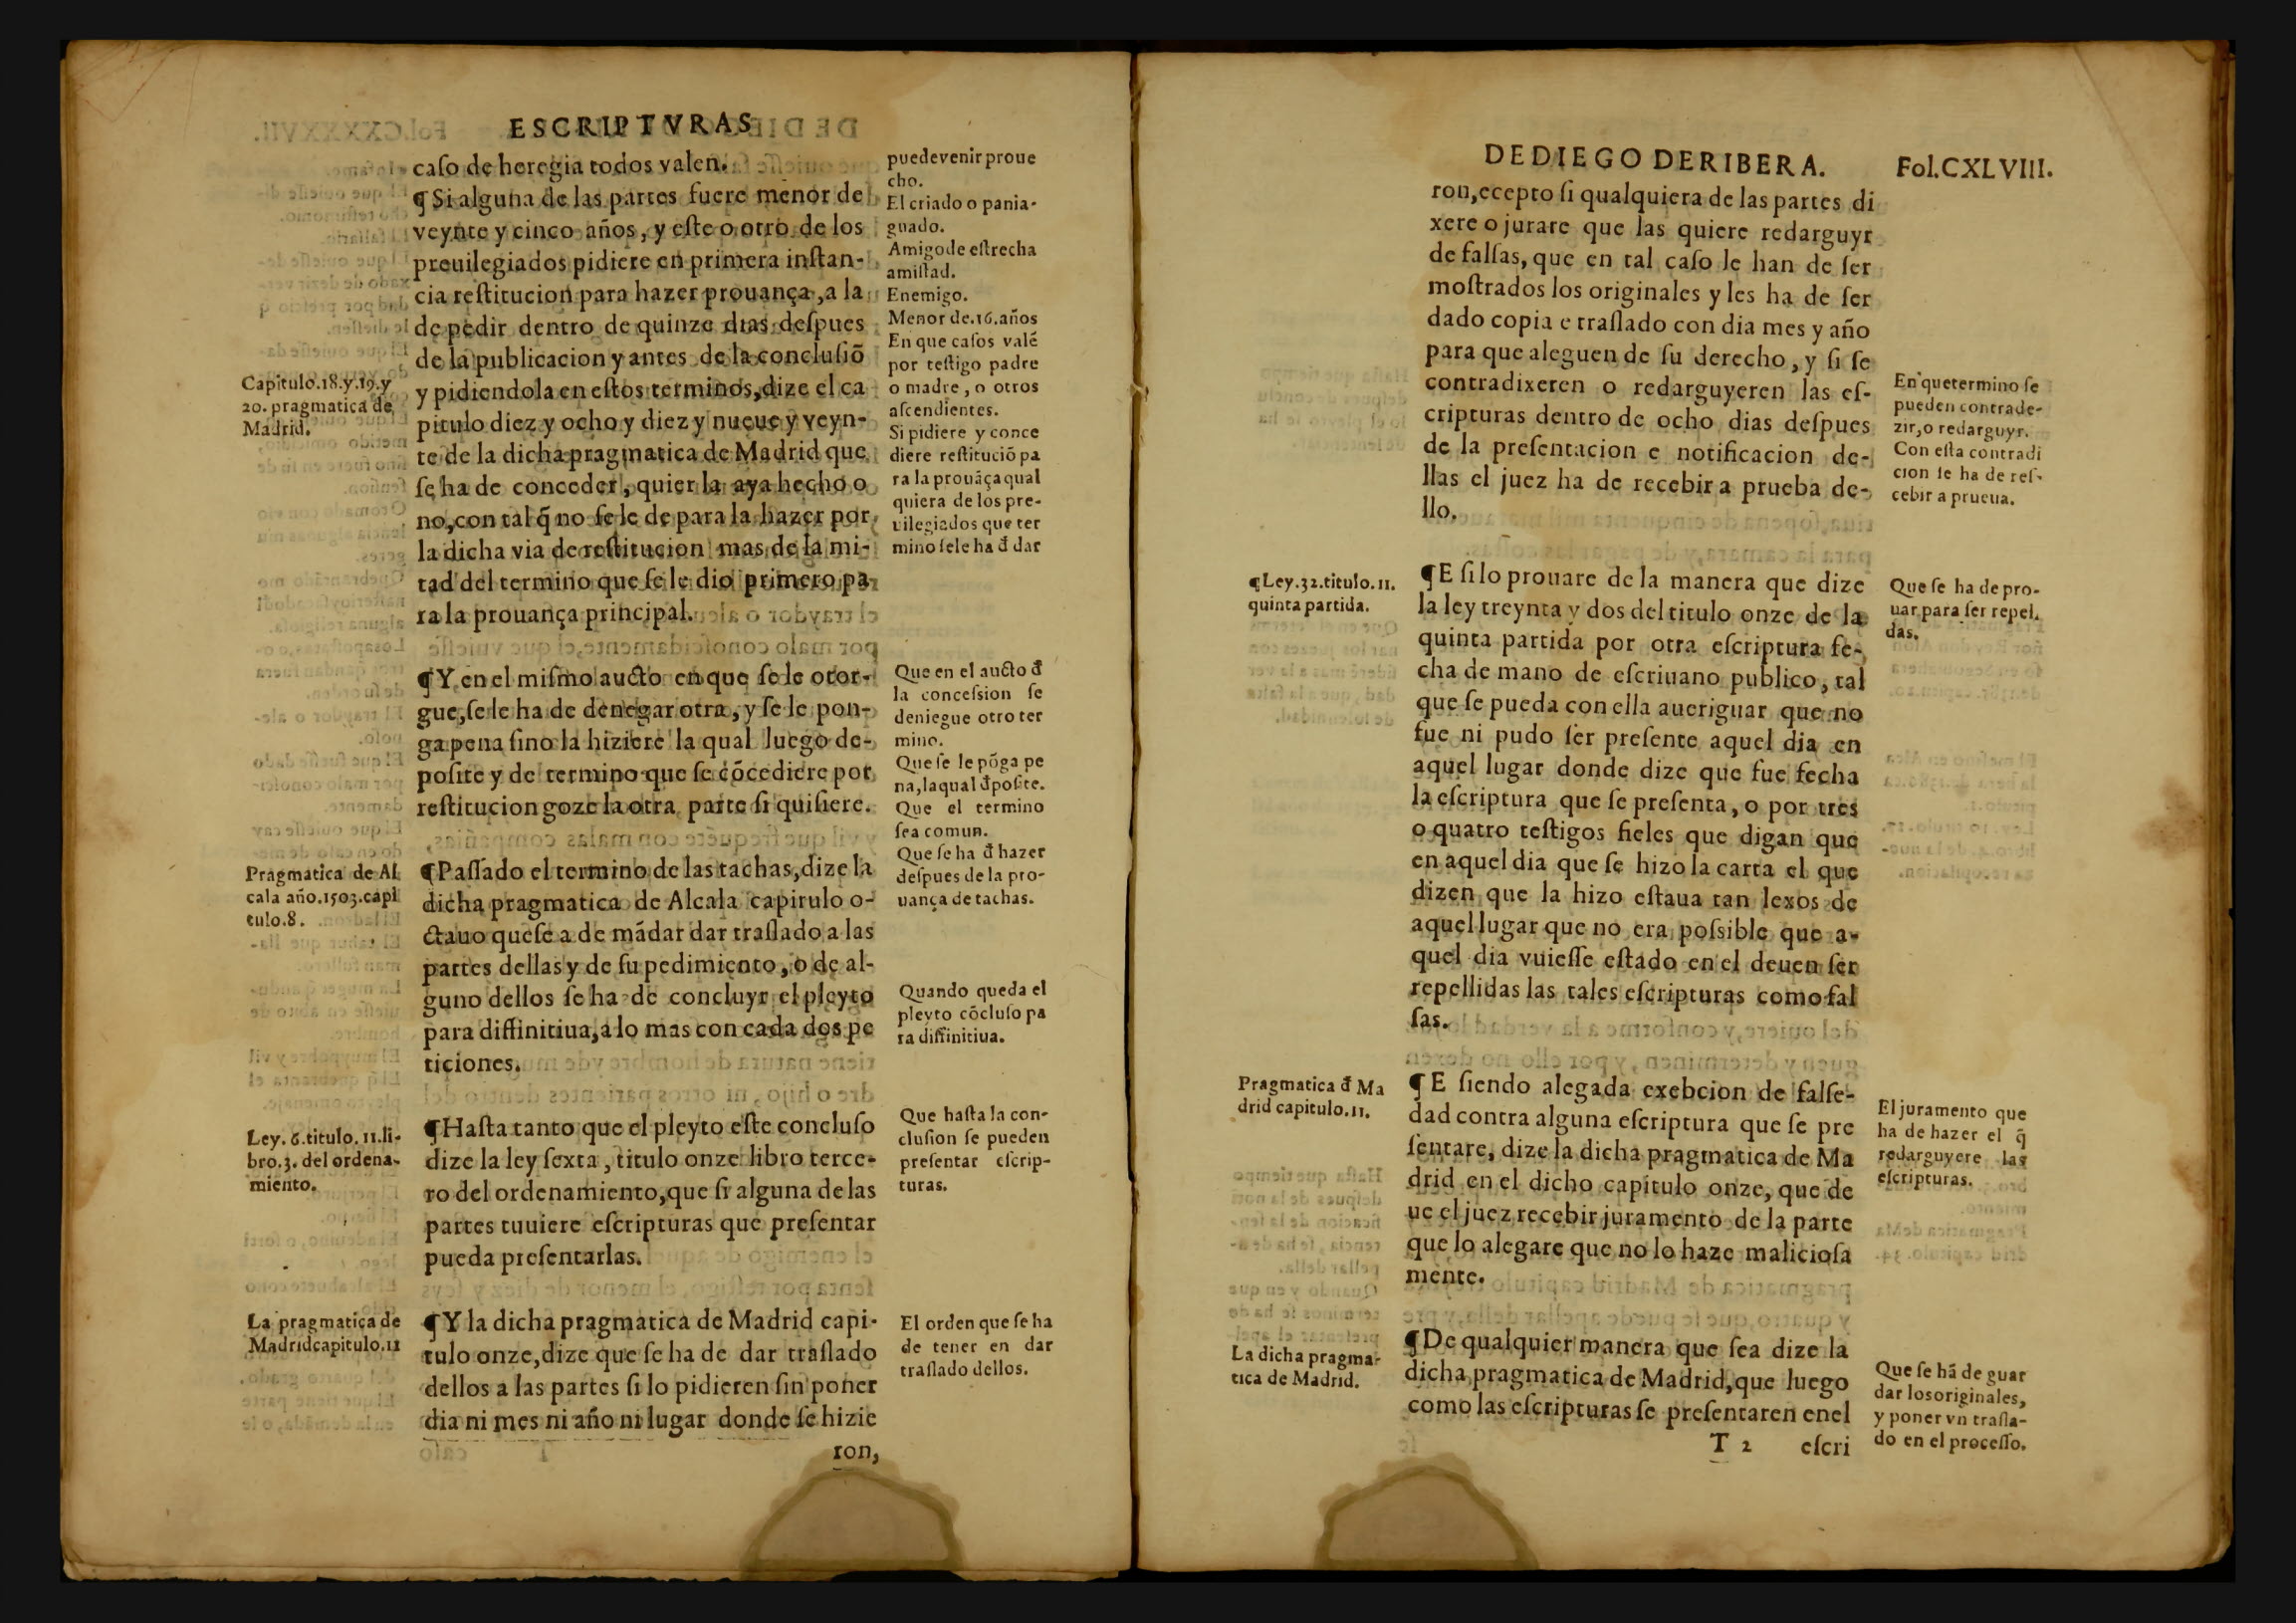 ESCRIPTVRAS
caſo de heregia todos valen.
¶ Si alguna de las partes fuere menor de
veynte y cinco años, y eſte o otro de los
preuilegiados pidiere en primera inſtan-
cia reſtitucion para hazer prouança, a la
de pedir dentro de quinze dias deſpues
de la publicacion y antes de la concluſiō
y pidiendola en eſtos terminos, dize el ca
pitulo diez y ocho y diez y nueue y veyn-
te de la dicha pragmatica de Madrid que
ſe ha de conceder, quier la aya hecho o
no, con tal q̄ no ſe le de para la hazer por
la dicha via de reſtitucion mas de la mi-
tad del termino que ſe le dio primero pa
ra la prouança principal.
¶ Y en el miſmo aucto en que ſe le otor-
gue, ſe le ha de denegar otra, y ſe le pon-
ga pena ſino la hiziere la qual luego de-
poſite y de termino que ſe cōcediere por
reſtitucion goze la otra parte ſi quiſiere.
¶ Paſſado el termino de las tachas, dize la
dicha pragmatica de Alcala capirulo o-
ctauo queſe a de mādar dar traſlado a las
partes dellas y de ſu pedimiento, o de al-
guno dellos ſe ha de concluyr el pleyto
para diffinitiua, a lo mas con cada dos pe
ticiones.
¶ Haſta tanto que el pleyto eſte concluſo
dize la ley ſexta, titulo onze libro terce-
ro del ordenamiento, que ſi alguna de las
partes tuuiere eſcripturas que preſentar
pueda preſentarlas.
¶ Y la dicha pragmatica de Madrid capi-
tulo onze, dize que ſe ha de dar traſlado
dellos a las partes ſi lo pidieren ſin poner
dia ni mes ni año ni lugar donde ſe hizie
ron,
Capitulo.18.y.19.y
20. pragmatica de
Madrid.
Pragmatica de Al
cala año.1503.capi
tulo.8.
Ley. 6.titulo. 11.li-
bro.3. del ordena-
miento.
La pragmatica de
Madridcapitulo.11
puedevenir proue
cho.
El criado o pania-
guado.
Amigo de eſtrecha
amiſtad.
Enemigo.
Menor de.16.años
En que caſos valē
por teſtigo padre
o madre, o otros
aſcendientes.
Si pidiere y conce
diere reſtituciō pa
ra la prouāça qual
quiera de los pre-
uilegiados que ter
mino ſele ha đ dar
Que en el aucto đ
la conceſsion ſe
deniegue otro ter
mino.
Que ſe le pōga pe
na, laqual đpoſite.
Que el termino
ſea comun.
Que ſe ha đ hazer
deſpues de la pro-
uança de tachas.
Quando queda el
pleyto cōcluſo pa
ra diffinitiua.
Que haſta la con-
cluſion ſe pueden
preſentar eſcrip-
turas.
El orden que ſe ha
de tener en dar
traſlado dellos.
DE DIEGO DE RIBERA. Fol.CXLVIII.
ron, ecepto ſi qualquiera de las partes di
xere o jurare que las quiere redarguyr
de falſas, que en tal caſo le han de ſer
moſtrados los originales y les ha de ſer
dado copia e traſlado con dia mes y año
para que aleguen de ſu derecho, y ſi ſe
contradixeren o redarguyeren las eſ-
cripturas dentro de ocho dias deſpues
de la preſentacion e notificacion de-
llas el juez ha de recebir a prueba de-
llo.
¶ E ſi lo prouare de la manera que dize
la ley treynta y dos del titulo onze de la
quinta partida por otra eſcriptura fe-
cha de mano de eſcriuano publico, tal
que ſe pueda con ella aueriguar que no
fue ni pudo ſer preſente aquel dia en
aquel lugar donde dize que fue fecha
la eſcriptura que ſe preſenta, o por tres
o quatro teſtigos fieles que digan que
en aquel dia que ſe hizo la carta el que
dizen que la hizo eſtaua tan lexos de
aquel lugar que no era poſsible que a-
quel dia vuieſſe eſtado en el deuen ſer
repellidas las tales eſcripturas como fal
ſas.
¶ E ſiendo alegada exebcion de falſe-
dad contra alguna eſcriptura que ſe pre
ſentare, dize la dicha pragmatica de Ma
drid en el dicho capitulo onze, que de
ue el juez recebir juramento de la parte
que lo alegare que no lo haze malicioſa
mente.
¶ De qualquier manera que ſea dize la
dicha pragmatica de Madrid, que luego
como las eſcripturas ſe preſentaren enel
T 2 eſcri
¶Ley.32.titulo.11.
quinta partida.
Pragmatica đ Ma
drid capitulo.11.
La dicha pragma-
tica de Madrid.
En quetermino ſe
pueden contrade-
zir, o redarguyr.
Con eſta contradi
cion ſe ha de reſ-
cebir a prueua.
Que ſe ha de pro-
uar para ſer repel.
das.
El juramento que
ha de hazer el q̄
redarguyere las
eſcripturas.
Que ſe hā de guar
dar losoriginales,
y poner vn traſla-
do en el proceſſo.